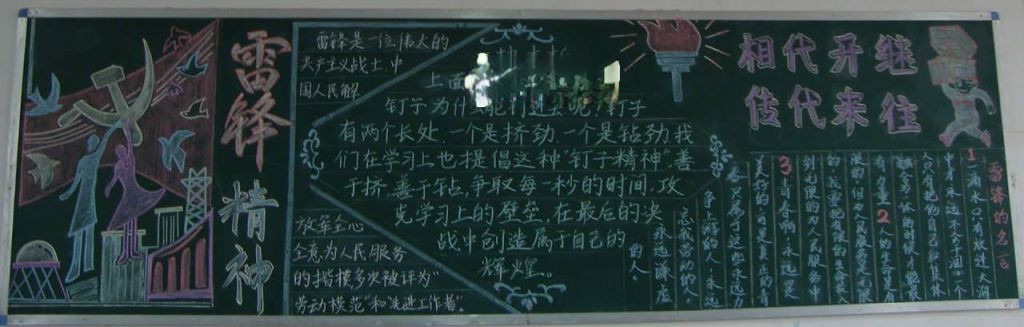 雷锋精神
雷锋是一位伟大的
共产主义战士,中
国人民解
放军全心
全意为人民服务
的楷模多次被评为"
劳动模范"和"先进工作者"。
上面
钉子为什么
钉子
有两个长处,一个是挤劲,一个是钻劲,我
们在学习上也提倡这种"钉子精神",善
于挤,善于钻,争取每一秒的时间,攻
克学习上的壁垒,在最后的决
战中创造属于自己的
辉煌。
相代开继
传代来往
雷锋的名言
1一滴水只有放进大海
中才永远不会干涸,一个
人只有把他自己和集体
2人的生命是有
限的,但为人民服务是无限
的,我要把有限的
到无限的为人民服务中
3青春啊,永远是
美好的,可是真正的青
春,只属于这些永远力
争上游的人,永远
忘我劳动的人,
永远谦虚
的人。